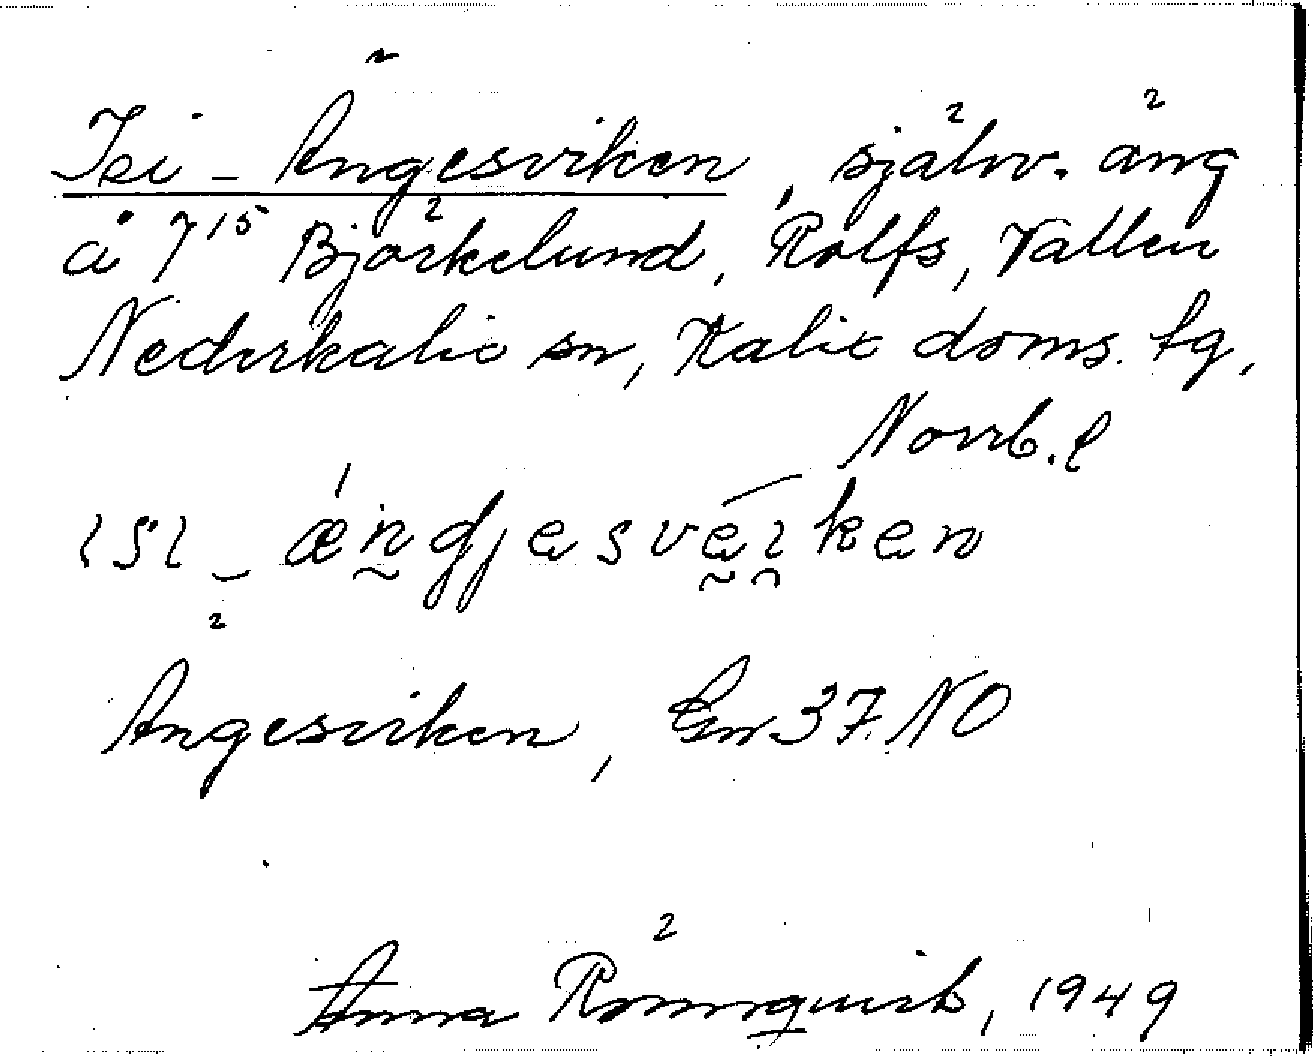 Isi-Ängesviken, självv. äng
å 7¹⁵ Björkelund, Rolfs, Vallen
Nederkalix sn, Kalix doms. tg,
Norrb. l
ɩsɩ-ǽndjesvēɩken
Ängesviken, Gn 37 NO
Anna Rönnquist, 1949